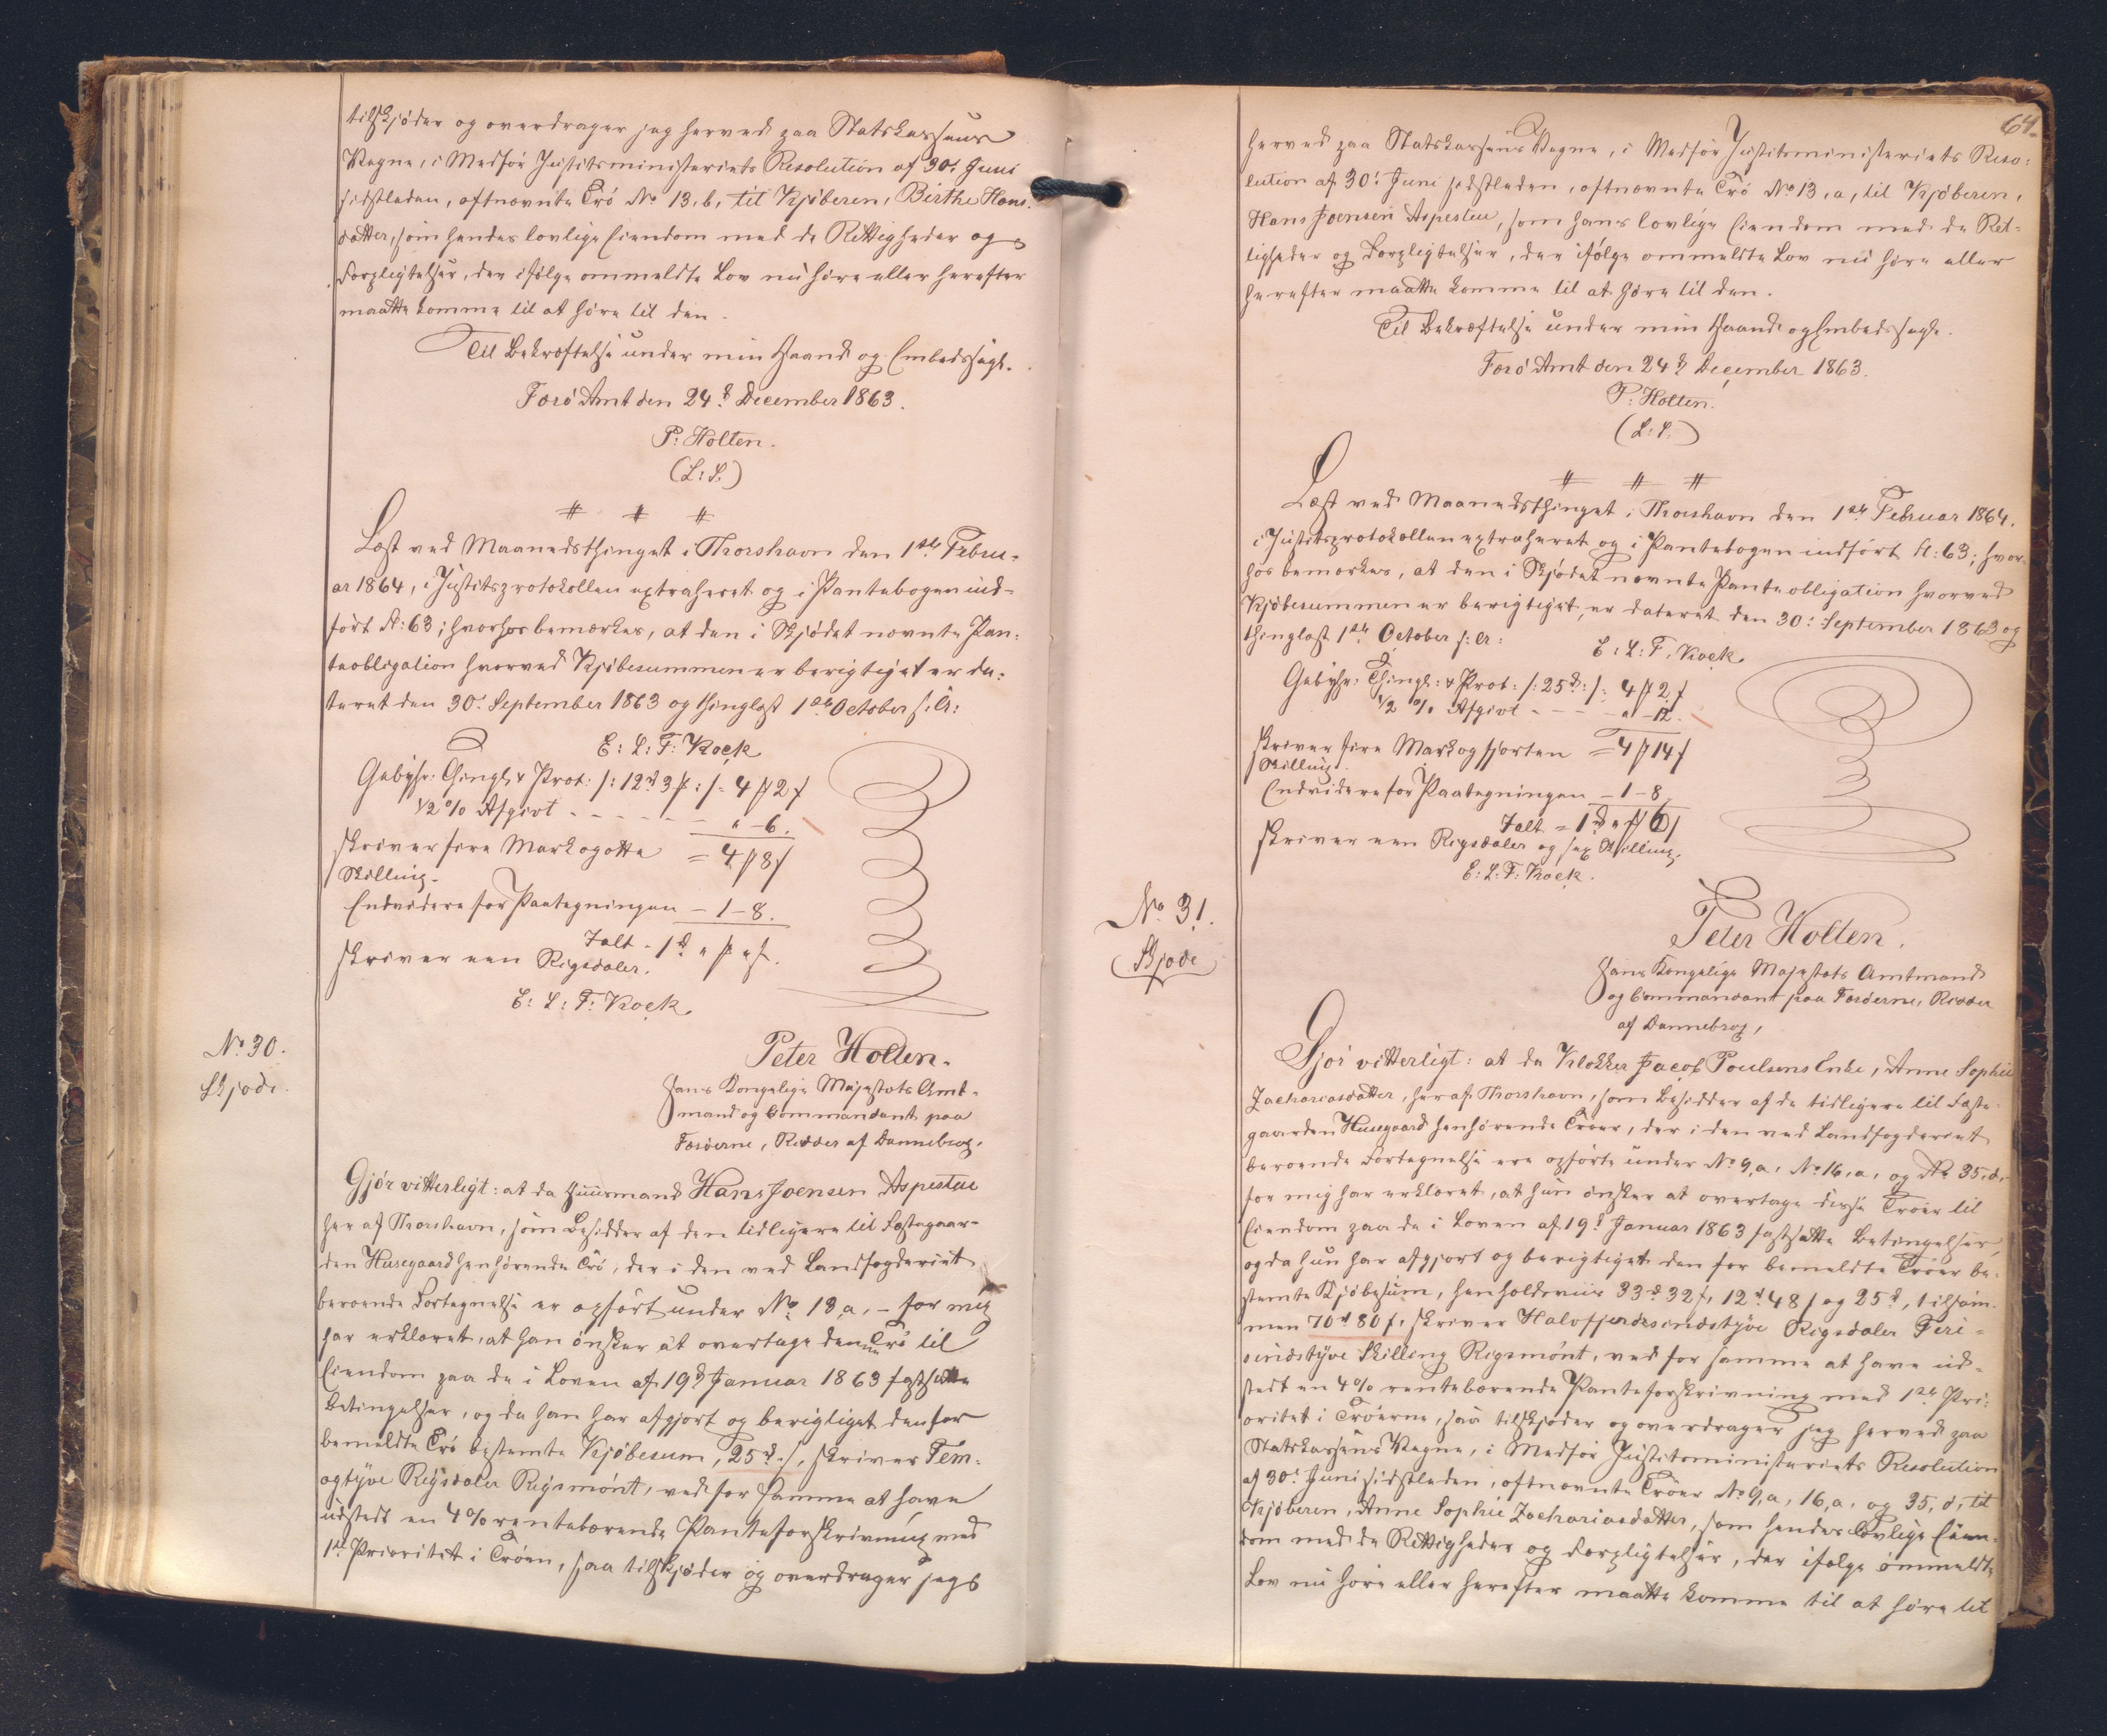 tilskjøder og overdrager jeg herved paa Statskassens
Vegne, i Medfør Justitsministeriets Resolution af 30' Juni
sidstleden, oftnævnte Trø No 13, b, til Kjøberen, Birthe Hans-
datter, som hendes lovlige Eiendom med de Rettigheder og
Forpligtelser, der ifølge ommeldte Lov nu høre eller herefter
maatte komme til at høre til den.
Til Bekræftelse under min Haand og Embedssegl.
Færø Amt den 24d December 1863.
P: Holten.
(L: S.)
Læst ved Maanedsthinget i Thorshavn den 1ste Febru-
ar 1864, i Justitsprotokollen extraheret og i Pantebogen ind-
ført fl: 63; hvorhos bemærkes, at den i Skjødet nævnte Pan-
teobligation hvorved Kjøbesummen er berigtiget er da-
teret den 30' September 1863 og thinglæst 1ste October s: A:
E: L: F: Kock
Gebyhr: Thingl: & Prot: /: 12rd 3 ß :/ = 4 ß 2 s
1/2 % Afgivt - - - - - - " - 6.
skriver fire Mark og otte = 4 ß 8 s
Skilling.
Endvidere for Paategningen - 1 - 8.
Ialt - 1rd " ß " s.
skriver een Rigsdaler.
E: L: F: Kock.
No 30.
Skjøde.
Peter Holten.
Hans Kongelige Majestæts Amt-
mand og Commandant paa
Færøerne, Ridder af Dannebrog,
Gjør vitterligt: at da Huusmand Hans Joensen Aspestue
her af Thorshavn, som Besidder af den tidligere til Fæstegaar-
den Husegaard henhørende Trø, der i den ved Landfogderiet
beroende Fortegnelse er opført under No 13, a, - for mig
har erklæret, at han ønsker at overtage denne Trø til
Eiendom paa de i Loven af 19d Januar 1863 fastsatte
Betingelser, og da han har afgjort og berigtiget den for
bemeldte Trø bestemte Kjøbesum, 25rd./., skriver Fem-
ogtyve Rigsdaler Rigsmønt, ved for samme at have
udstedt en 4 % rentebærende Panteforskrivning med
1ste Prioritet i Trøen, saa tilskjøder og overdrager jeg
64.
herved paa Statskassens Vegne, i Medfør Justitsministeriets Reso-
lution af 30' Juni sidstleden, oftnævnte Trø No 13, a, til Kjøberen,
Hans Joensen Aspestue, som hans lovlige Eiendom med de Ret-
tigheder og Forpligtelser, der ifølge ommeldte Lov nu høre eller
herefter maatte komme til at høre til den.
Til Bekræftelse under min Haand og Embedssegl.
Færø Amt den 24d December 1863.
P: Holten.
(L: S.)
Læst ved Maanedsthinget i Thorshavn den 1ste Februar 1864,
i Justitsprotokollen extraheret og i Pantebogen indført fl: 63; hvor-
hos bemærkes, at den i Skjødet nævnte Panteobligation hvorved
Kjøbesummen er berigtiget, er dateret den 30' September 1863 og
thinglæst 1ste October s: A:
E: L: F. Kock
Gebyhr: Thingl: & Prot: /: 25rd :/ = 4 ß 2 s
1/2 % Afgivt - - - " - 12.
skriver fire Mark og fjorten = 4 ß 14 s
Skilling.
Endvidere for Paategningen - 1 - 8
Ialt = 1rd " ß 6 s
skriver een Rigsdaler og sex Skilling.
E: L: F: Kock.
No 31.
Skjøde
Peter Holten.
Hans Kongelige Majestæts Amtmand
og Commandant paa Færøerne, Ridder
af Dannebrog,
Gjør vitterligt: at da Klokker Jacob Poulsens Enke, Anne Sophie
Zachariasdatter, her af Thorshavn, som Besidder af de tidligere til Fæste-
gaarden Husegaard henhørende Trøer, der i den ved Landfogderiet
beroende Fortegnelse ere opførte under No 9, a, No 16, a, og No 35, d,
for mig har erklæret, at hun ønsker at overtage disse Trøer til
Eiendom paa de i Loven af 19d Januar 1863 fastsatte Betingelser,
og da hun har afgjort og berigtiget den for bemeldte Trøer be-
stemte Kjøbesum, henholdsviis 33rd 32 s, 12rd 48 s og 25rd, tilsam-
men 70rd 80 s, skriver Halvfjerdesindstyve Rigsdaler Firi-
sindstyve Skilling Rigsmønt, ved for samme at have ud-
stedt en 4 % rentebærende Panteforskrivning med 1ste Pri-
oritet i Trøerne, saa tilskjøder og overdrager jeg herved paa
Statskassens Vegne, i Medfør Justitsministeriets Resolution
af 30' Juni sidstleden, oftnævnte Trøer No 9, a, 16, a, og 35, d, til
Kjøberen, Anne Sophie Zachariasdatter, som hendes lovlige Eien-
dom med de Rettigheder og Forpligtelser, der ifølge ommeldte
Lov nu høre eller herefter maatte komme til at høre til